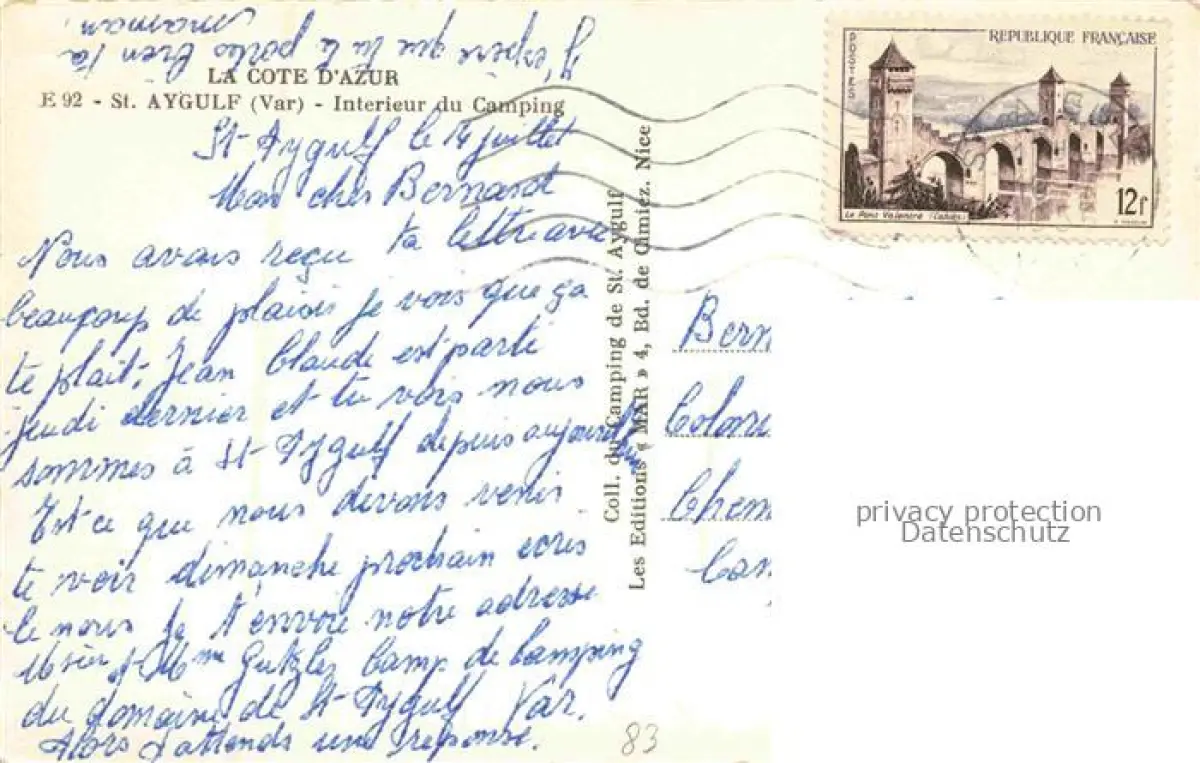 J'espère que tu te portes bien ta
maman
LA COTE D'AZUR
E 92 - St. AYGULF (Var) - Interieur du Camping
St Aygulf le 14 juillet
Mon cher Bernard
Nous avons reçu ta lettre avec
beaucoup de plaisir je vois que ça
te plait, Jean Claude est parti
jeudi dernier et tu vois nous
sommes à St Aygulf depuis aujourd'hui
Est-ce que nous devons venir
te voir dimanche prochain ecris
le nous je t'envoie notre adresse
Mr et Mme Camp de Camping
du domaine de St Aygulf Var.
Alors j'attends une reponse.
83
Coll. du Camping de St. Aygulf
Les Editions « MAR » 4, Bd. de Cimiez. Nice
POSTES
REPUBLIQUE FRANÇAISE
Le Pont Valentré (Cahors)
12f
Bern
Colon
Chem
privacy protection
Datenschutz